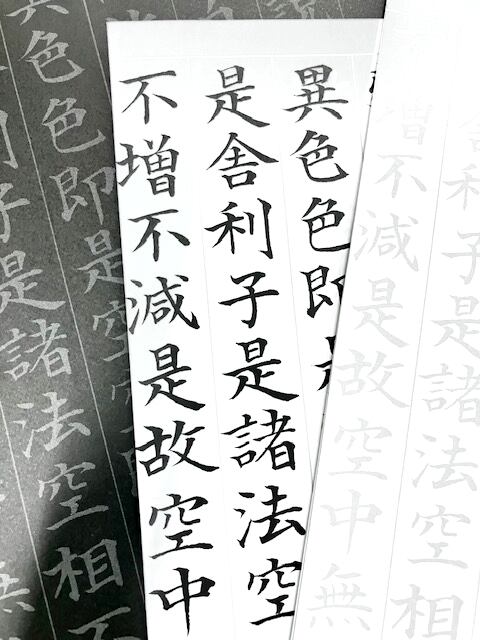 舎利子是諸法空相
増不減是故空中無
異色色即是
是舎利子是諸法空
不増不減是故空中
色色即是空
利子是諸法空相不
無